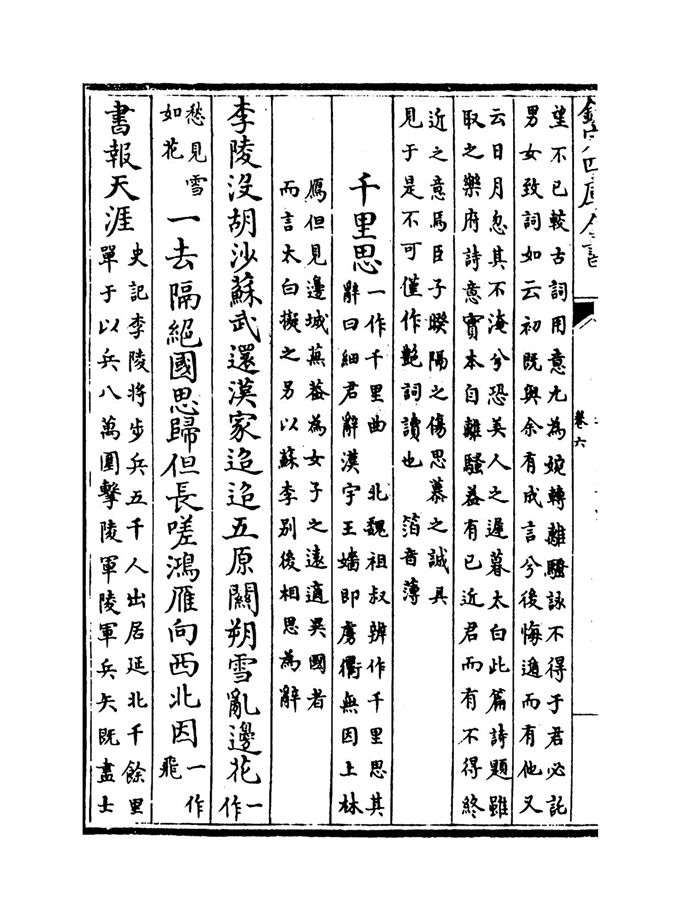 欽定四庫全書
卷六
望不已較古詞用意尤為婉轉離騷詠不得于君必託
男女致詞如云初既與余有成言兮後悔遁而有他又
云日月忽其不淹兮恐美人之遲暮太白此篇詩題雖
取之樂府詩意實本自離騷葢有已近君而有不得終
近之意焉臣子暌隔之傷思慕之誠具
見于是不可僅作艶詞讀也 箔音薄
千里思 一作千里曲 北魏祖叔辨作千里思其
辭曰細君辭漢宇王嬙即虜衢無因上林
鴈但見邊城蕪葢為女子之遠適異國者
而言太白擬之另以蘇李别後相思為辭
李陵没胡沙蘇武還漢家迢迢五原關朔雪亂邊花一作
愁見雪如花一去隔絕國思歸但長嗟鴻雁向西北因一作飛
書報天涯 史記李陵將步兵五千人出居延北千餘里
單于以兵八萬圍擊陵軍陵軍兵矢既盡士